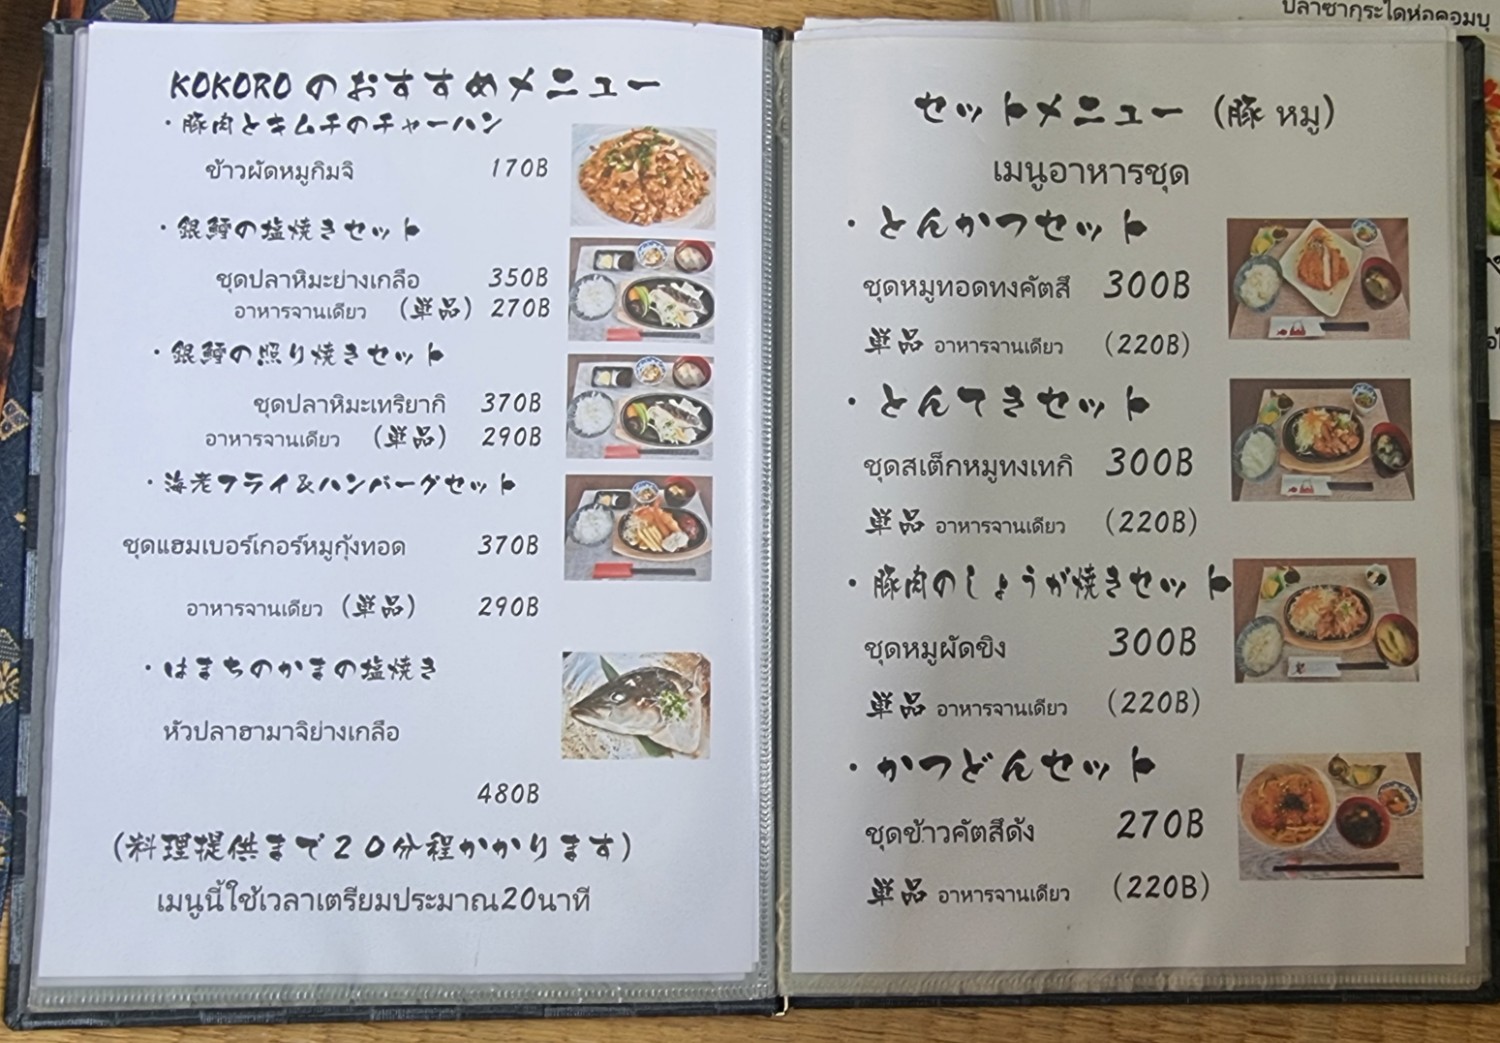 KOKORO のおすすめメニュー
・豚肉とキムチのチャーハン
ข้าวผัดหมูกิมจิ 170B
・銀鱈の塩焼きセット
ชุดปลาหิมะย่างเกลือ 350B
อาหารจานเดียว (単品) 270B
・銀鱈の照り焼きセット
ชุดปลาหิมะเทริยากิ 370B
อาหารจานเดียว (単品) 290B
・海老フライ&ハンバーグセット
ชุดแฮมเบอร์เกอร์หมูกุ้งทอด 370B
อาหารจานเดียว (単品) 290B
・はまちのかまの塩焼き
หัวปลาฮามาจิย่างเกลือ
480B
(料理提供まで20分程かかります)
เมนูนี้ใช้เวลาเตรียมประมาณ20นาที
セットメニュー (豚 หมู)
เมนูอาหารชุด
・とんかつセット
ชุดหมูทอดทงคัตสึ 300B
単品 อาหารจานเดียว (220B)
・とんてきセット
ชุดสเต็กหมูทงเทกิ 300B
単品 อาหารจานเดียว (220B)
・豚肉のしょうが焼きセット
ชุดหมูผัดขิง 300B
単品 อาหารจานเดียว (220B)
・かつどんセット
ชุดข้าวคัตสึดัง 270B
単品 อาหารจานเดียว (220B)
ปลาซากุระไดห่อคอมบุ